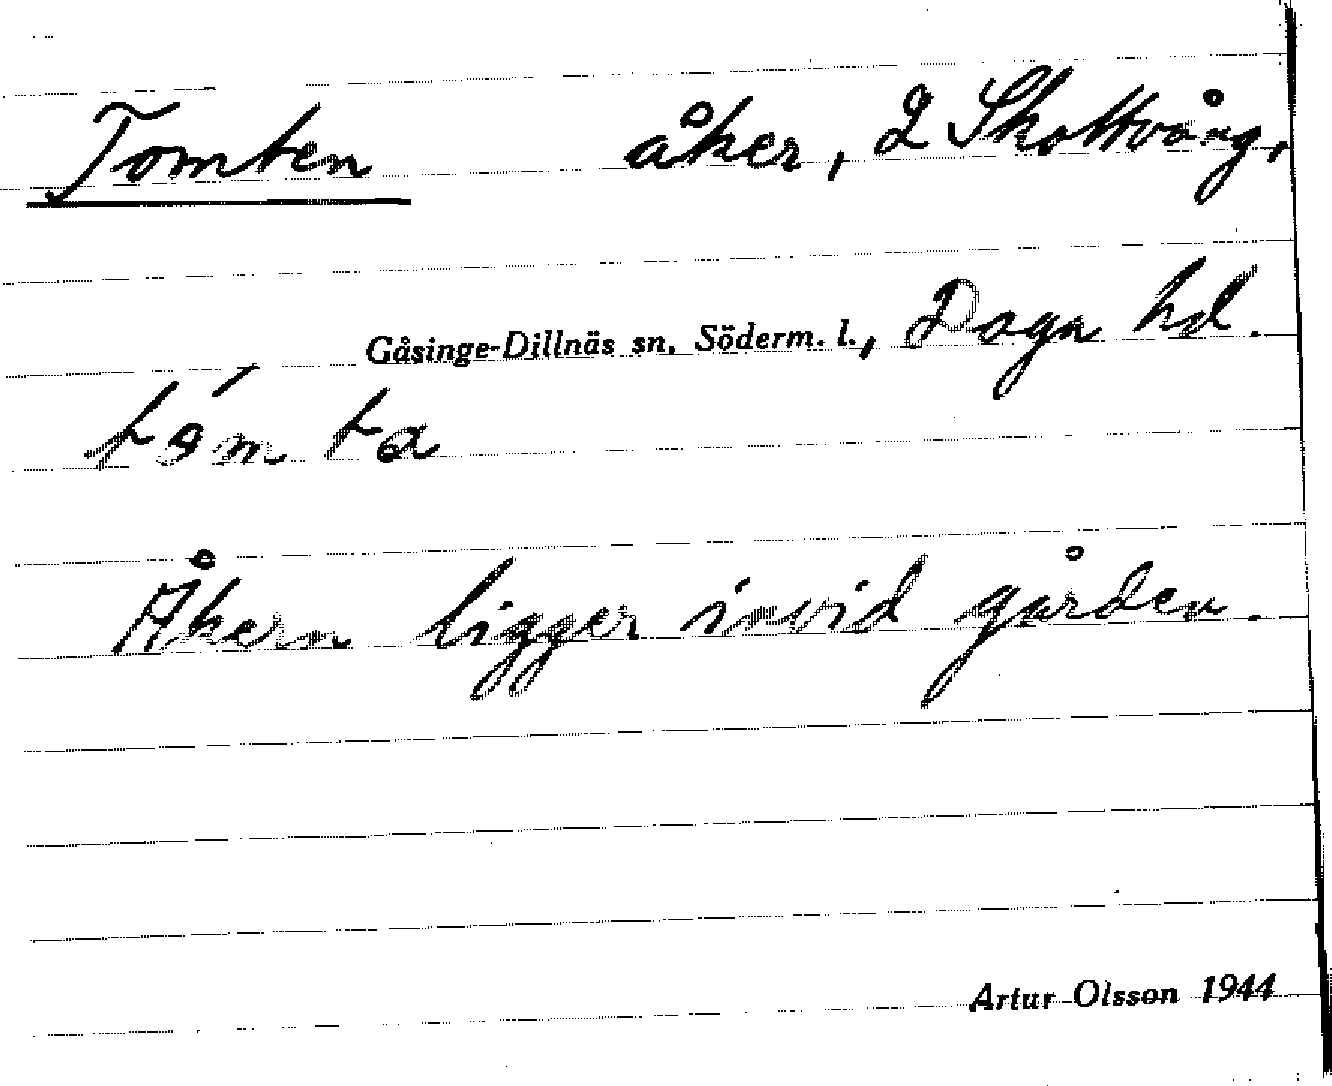 Tomten åker, 2 Skottvång,
Gåsinge-Dillnäs sn, Söderm. l., Daga hd.
tómta
Åkern ligger invid gården.
Artur Olsson 1944